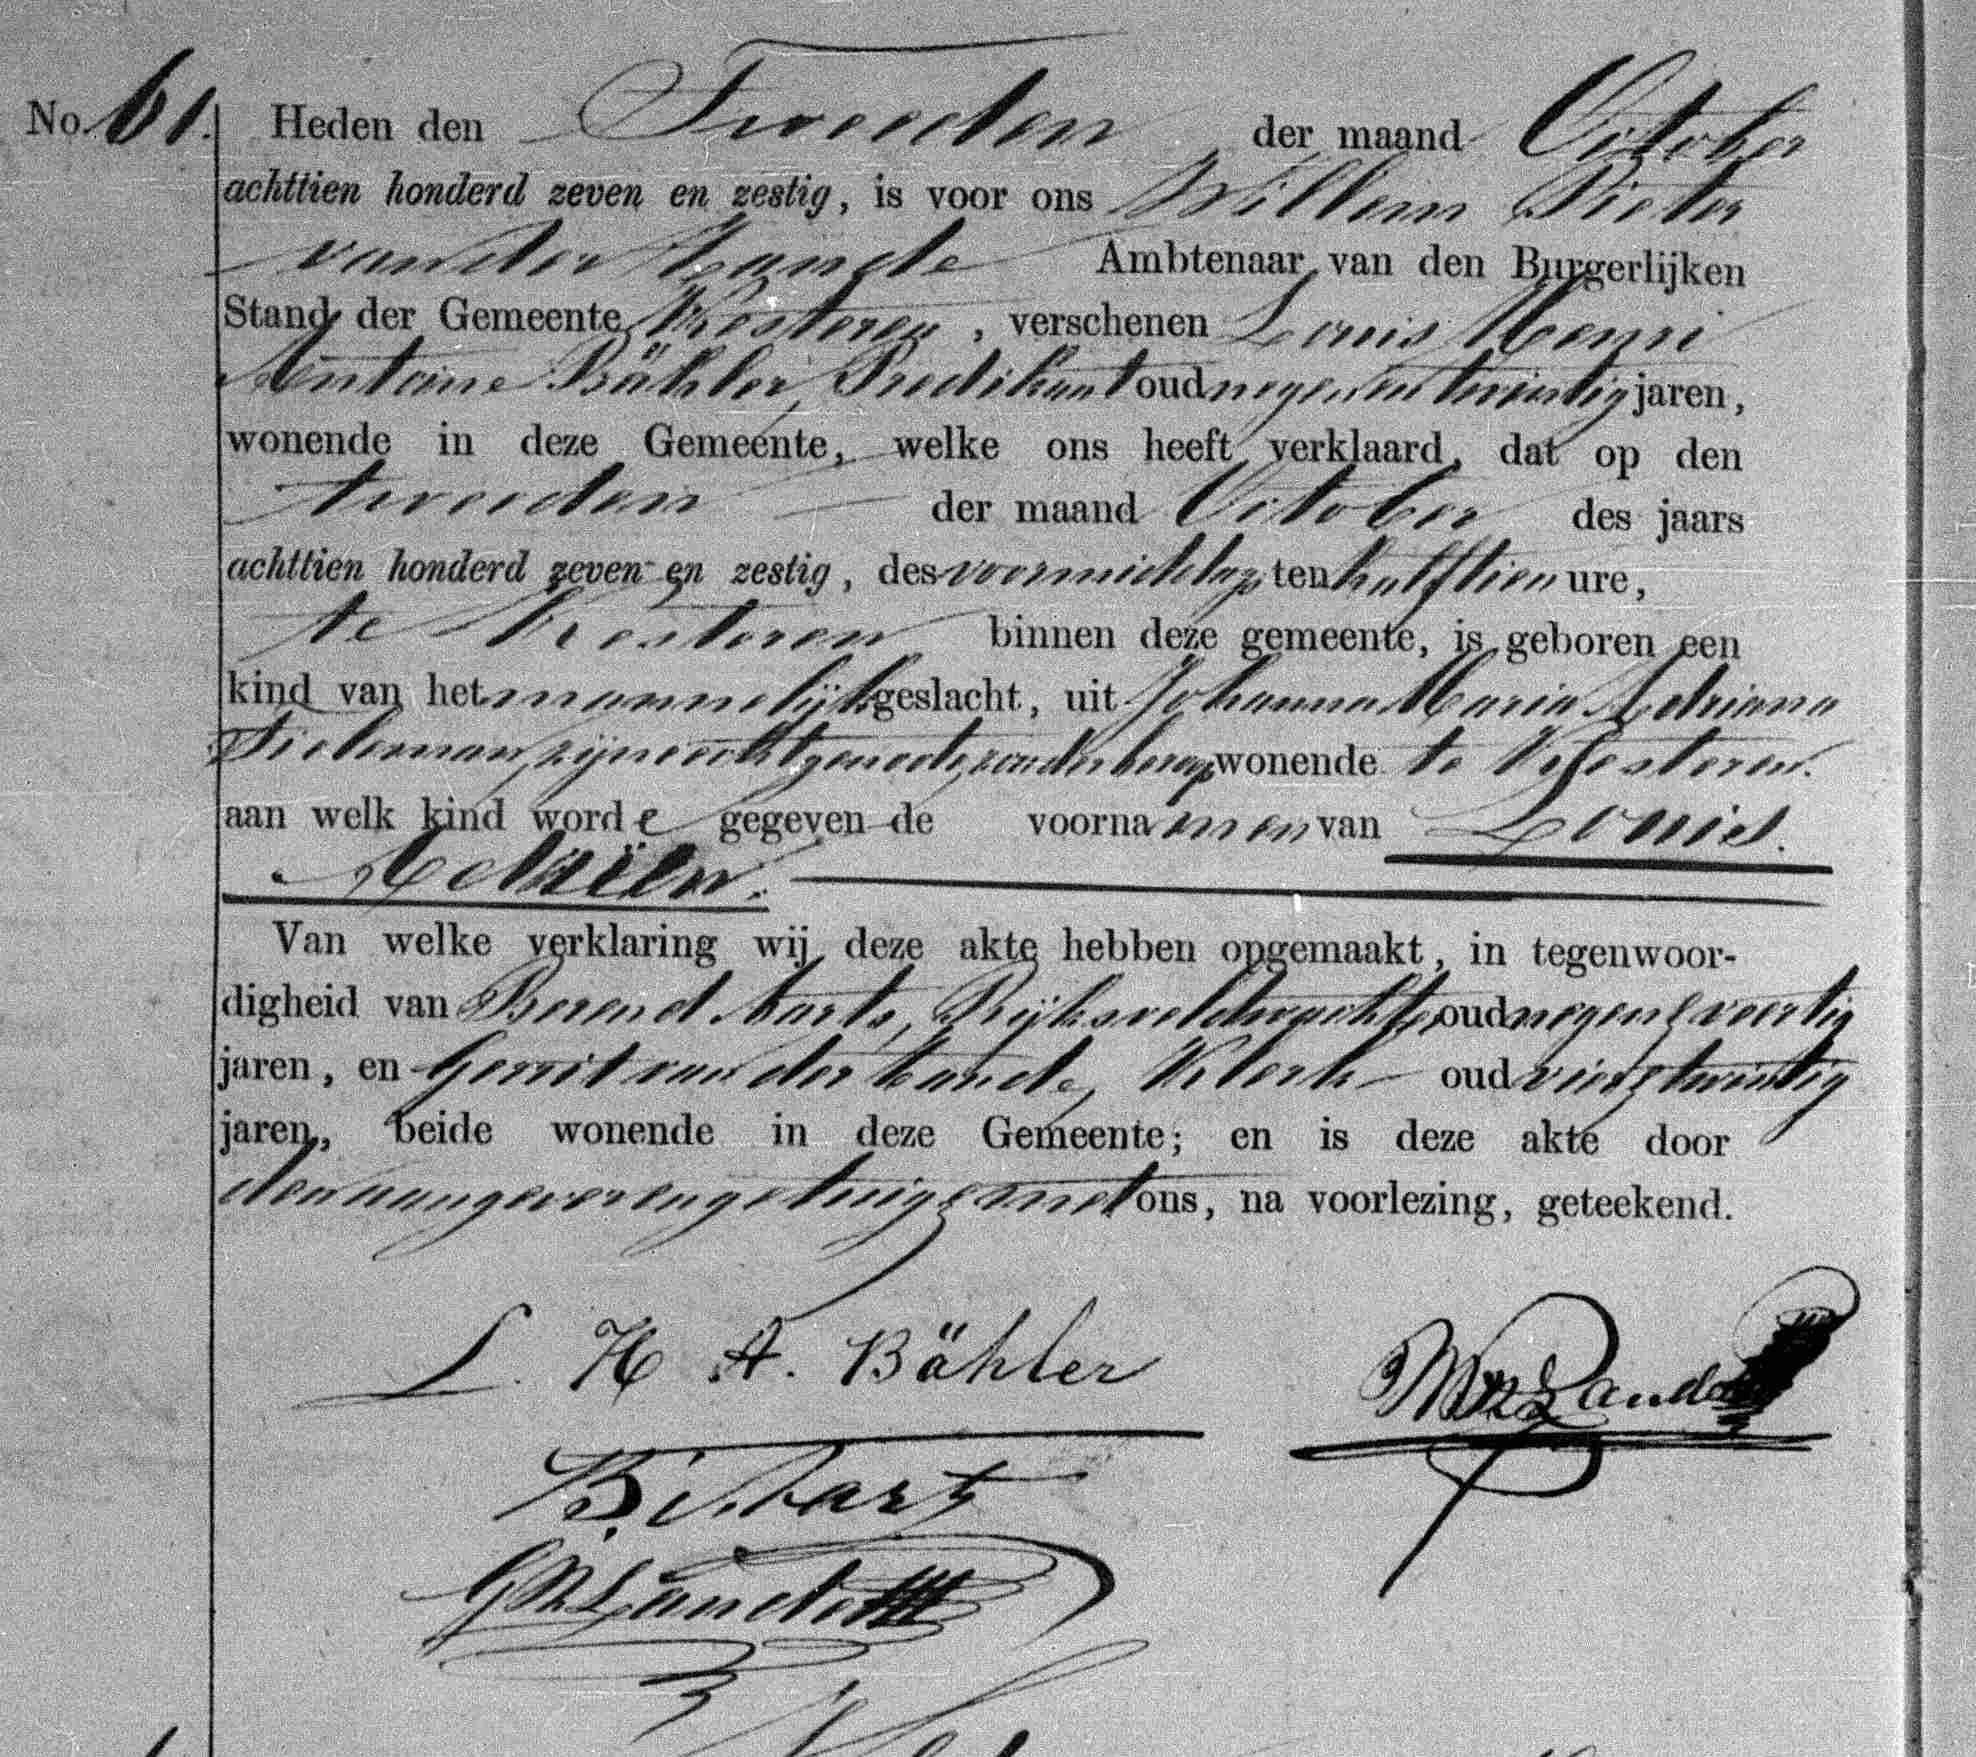 No. 61. Heden den Tweeden der maand October
achttien honderd zeven en zestig, is voor ons Willem Pieter
van der Zande Ambtenaar van den Burgerlijken
Stand der Gemeente Kesteren, verschenen Louis Henri
Antoine Bähler, Predikant oud negen en twintig jaren,
wonende in deze Gemeente, welke ons heeft verklaard, dat op den
tweeden der maand October des jaars
achttien honderd zeven en zestig, des voormiddags ten half tien ure,
te Kesteren binnen deze gemeente, is geboren een
kind van het mannelijk geslacht, uit Johanna Maria Adriana
Tieleman, zijne echtgenoote, zonder beroep wonende te Kesteren.
aan welk kind worde gegeven de voornamen van Louis.
Adriën.
Van welke verklaring wij deze akte hebben opgemaakt, in tegenwoor-
digheid van Berend Aarts, Rijksveldwachter, oud negen & veertig
jaren, en Gerrit van der Zande, Klerk oud vier & twintig
jaren, beide wonende in deze Gemeente; en is deze akte door
den aangever en getuigen met ons, na voorlezing, geteekend.
L. H. A. Bähler
B. Aarts